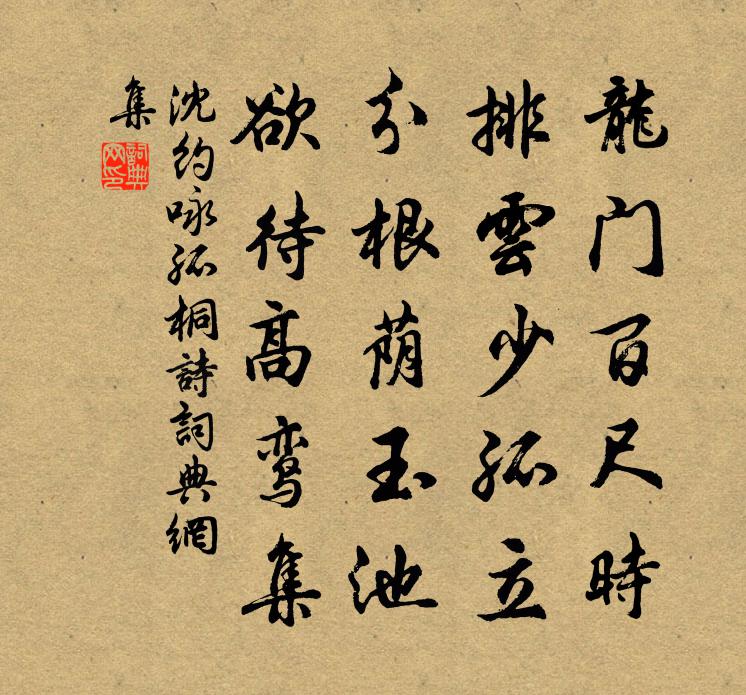 龍门百尺時
排雲少孤立
分根荫玉池
欲待高鸾集
沈約咏孤桐詩詞典網
集
詞典网印